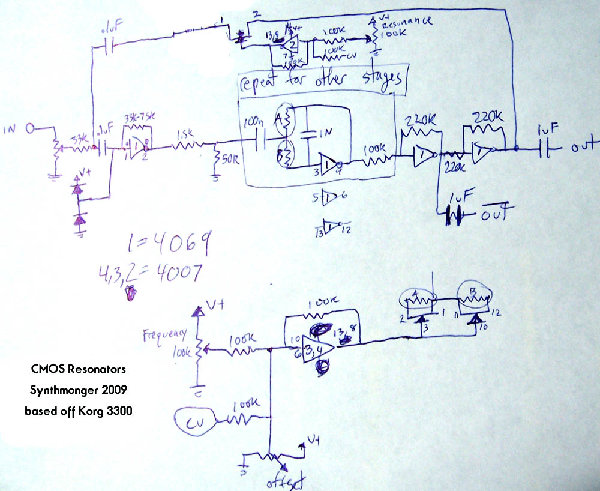 .1uF
1 2
V+
Resonance
100K
13,8
2
100K
100K
CV
repeat for other stages
IN
39K
.1uF
33K-75K
1
1 2
1.5K
50K
100n
A
B
1N
3
5 6
13 12
100K
220K
1
220K
220K
1uF
OUT
1uF
OUT
V+
1=4069
4,3,2=4007
V+
Frequency
100K
100K
CV
100K
100K
10
6
3,4
13,8
V+
offset
A
2 1
3
B
11 12
10
CMOS Resonators
Synthmonger 2009
based off Korg 3300